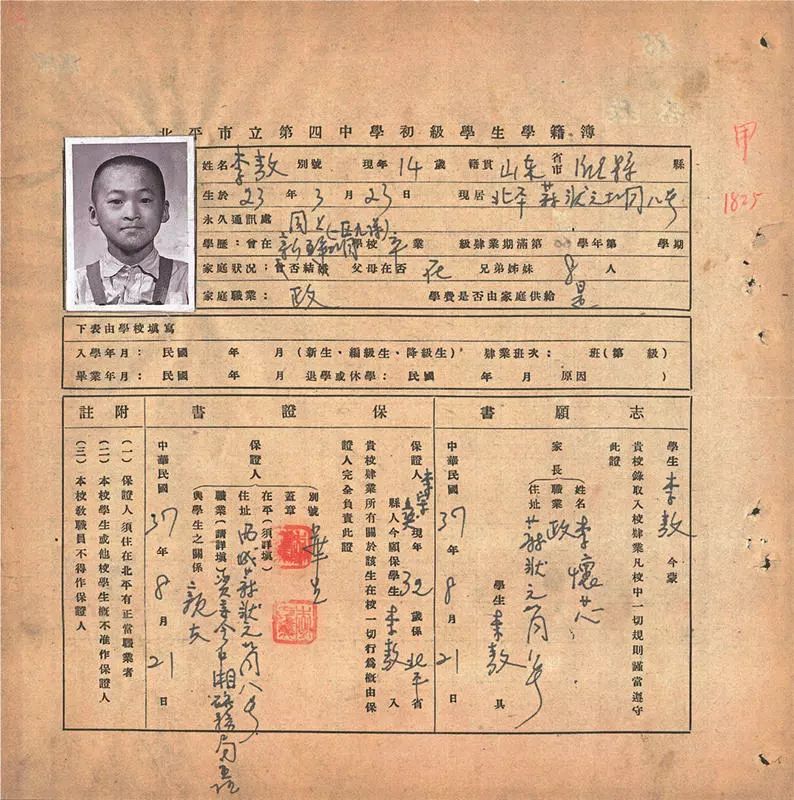 北平市立第四中學初級學生學籍簿
甲
1825
姓名 李敖 別號 現年 14 歲 籍貫 山东 省市 縣
生於 23 年 3 月 23 日 現居 北平 蘇状元胡同八号
永久通訊處 同上
學歷：曾在 學校 卒 業 級肄業期滿第 學年第 學期
家庭狀況：曾否結婚 父母在否 在 兄弟姊妹 8 人
家庭職業： 政 學費是否由家庭供給 是
下表由學校填寫
入學年月：民國 年 月（新生、編級生、降級生） 肄業班次： 班（第 級）
畢業年月：民國 年 月 退學或休學：民國 年 月 原因 ）
志願書
學生 李敖 今蒙
貴校錄取入校肄業凡校中一切規則謹當遵守
此證
家長 姓名 李懷
職業 政
住址 蘇状元胡同八号
學生 李敖 具
中華民國 37 年 8 月 21 日
保證書
保證人 現年 32 歲係 北平 省
縣人今願保學生 李敖 入
貴校肄業所有關於該生在校一切行爲概由保
證人完全負責此證
保證人
別號
蓋章
在平（須詳填）
住址 西城蘇状元胡同八号
職業（請詳填）
與學生之關係 親友
中華民國 37 年 8 月 21 日
附註
（一）保證人須住在北平有正當職業者
（二）本校學生或他校學生概不准作保證人
（三）本校教職員不得作保證人